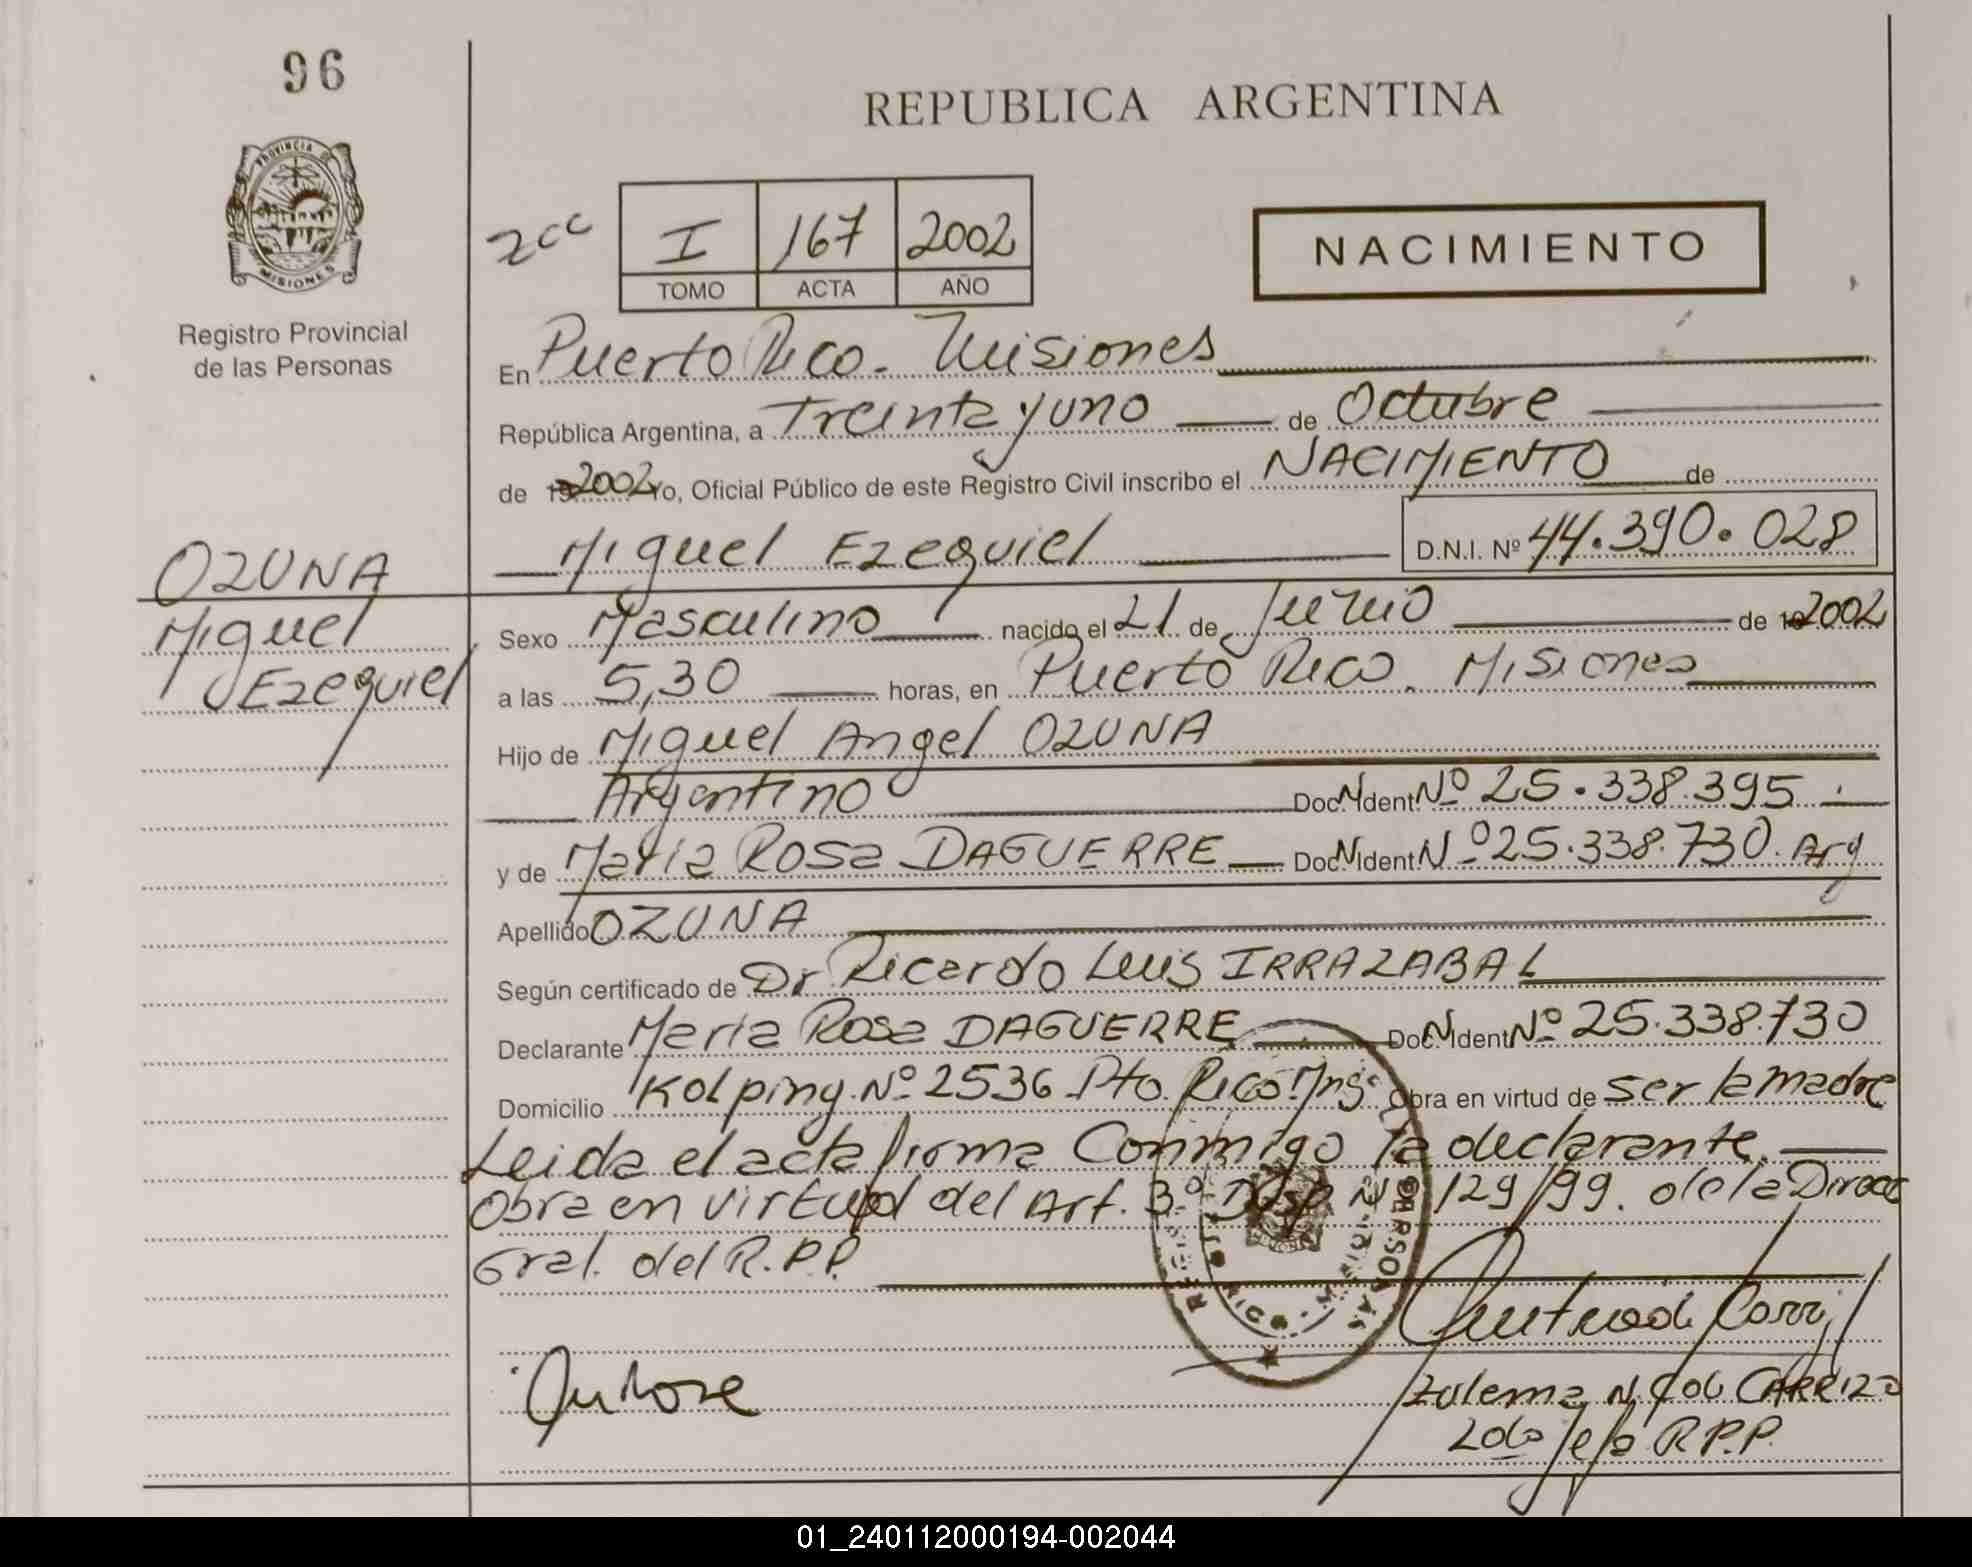 96
REPUBLICA ARGENTINA
PROVINCIA DE
MISIONES
Registro Provincial
de las Personas
2cc
I 167 2002
TOMO ACTA AÑO
NACIMIENTO
En Puerto Rico. Misiones
República Argentina, a Treinta y uno de Octubre
de 2002 Yo, Oficial Público de este Registro Civil inscribo el NACIMIENTO de
Miguel Ezequiel D.N.I. Nº 44.390.028
OZUNA
Miguel
Ezequiel
Sexo Masculino nacido el 21 de Junio de 2002
a las 5,30 horas, en Puerto Rico. Misiones
Hijo de Miguel Angel OZUNA
Argentino Doc. N ident Nº 25.338.395
y de Maria Rosa DAGUERRE Doc. N ident Nº 25.338.730. Arg
Apellido OZUNA
Según certificado de Dr Ricardo Luis IRRAZABAL
Declarante Maria Rosa DAGUERRE Doc. N ident Nº 25.338.730
Domicilio Kolping Nº 2536 Pto. Rico. Mns. Obra en virtud de ser la madre
Leida el acta firma Conmigo la declarante.
Obra en virtud del Art. 3º Disp Nº 129/99. de la Direcc
Gral. del R.P.P.
Zulema N. CARRIZO
Jefa R.P.P.
01_240112000194-002044